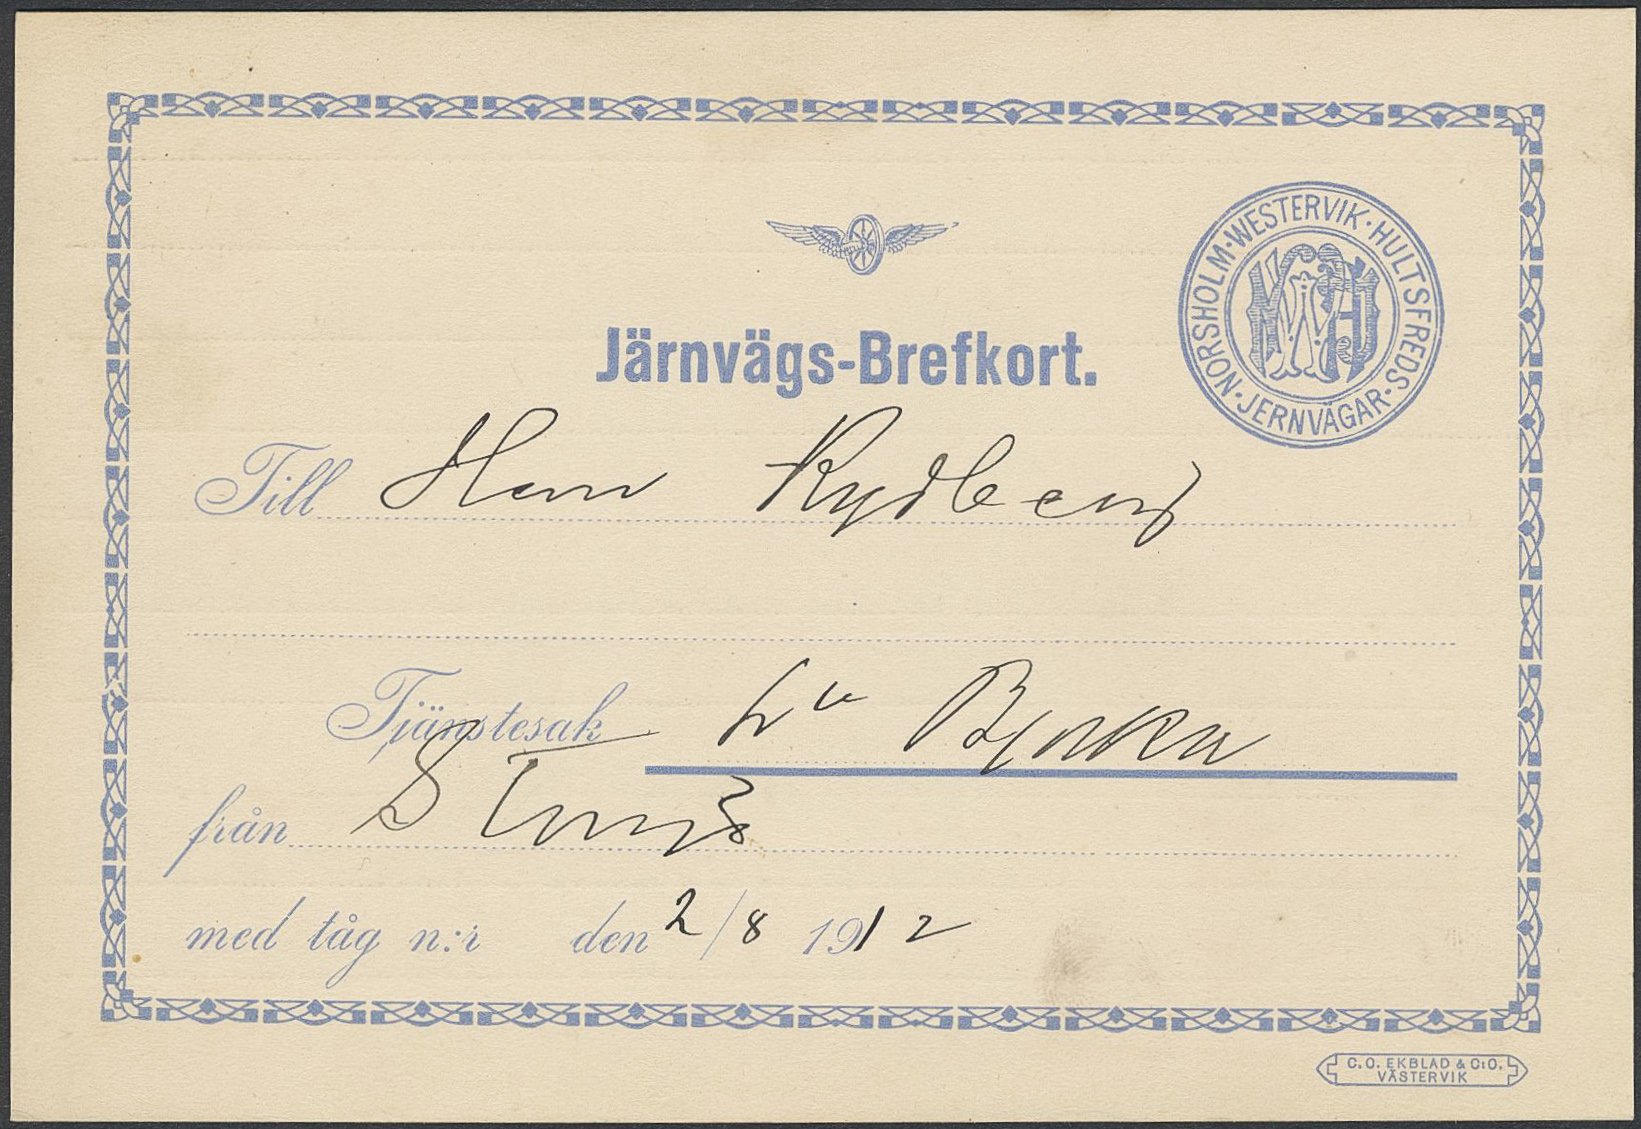 NORSHOLM·WESTERVIK·HULTSFREDS·JERNVÄGAR·
Järnvägs-Brefkort.
Till Herr Rydberg
Tjänstesak
från
med tåg n:r den 2/8 1912
C. O. EKBLAD & C:O.
VÄSTERVIK